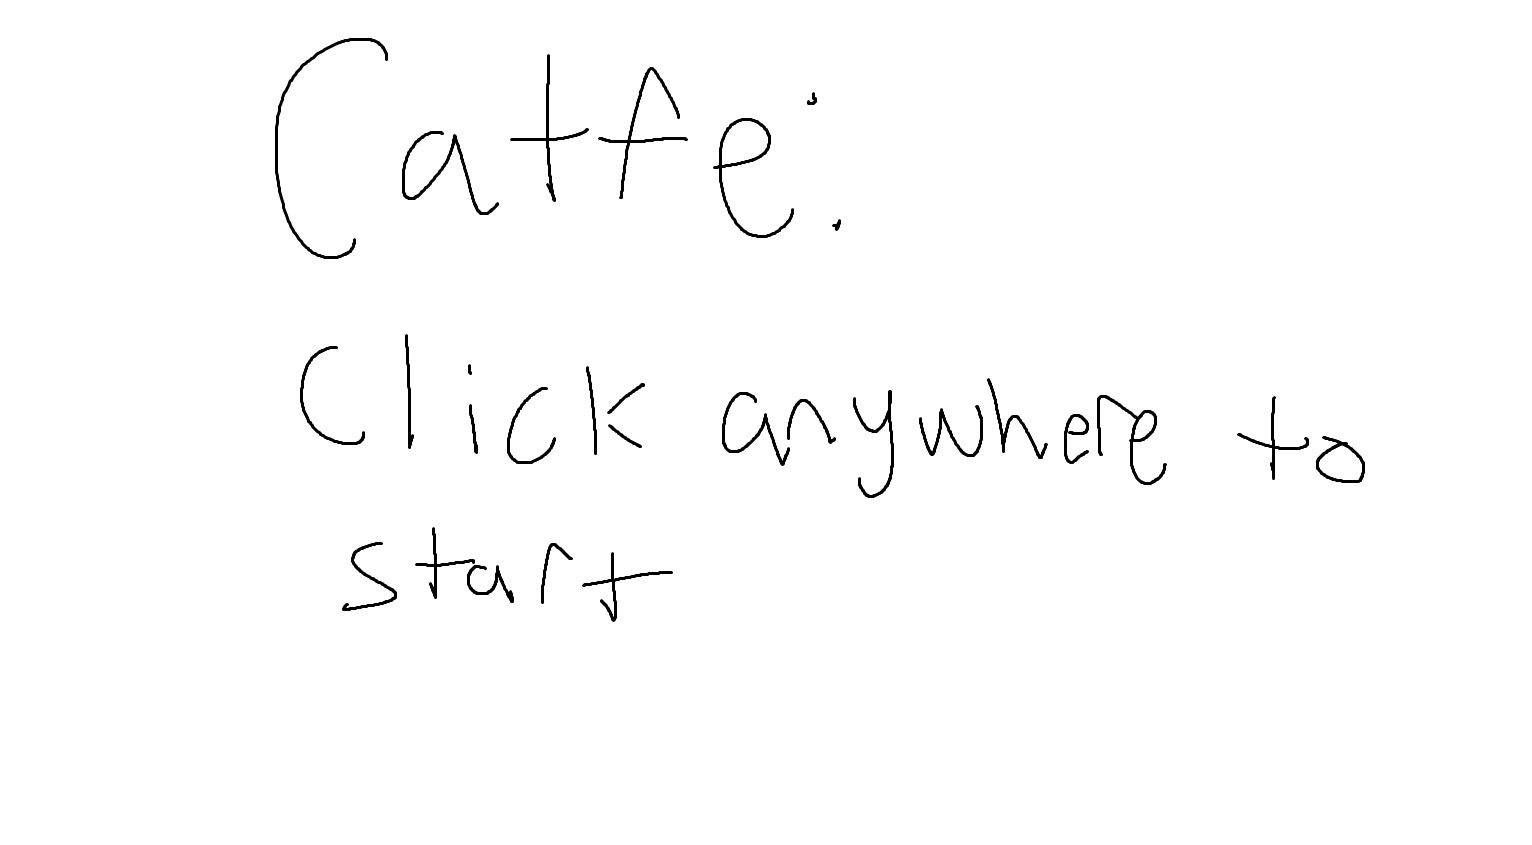 Catfe:
Click anywhere to
start